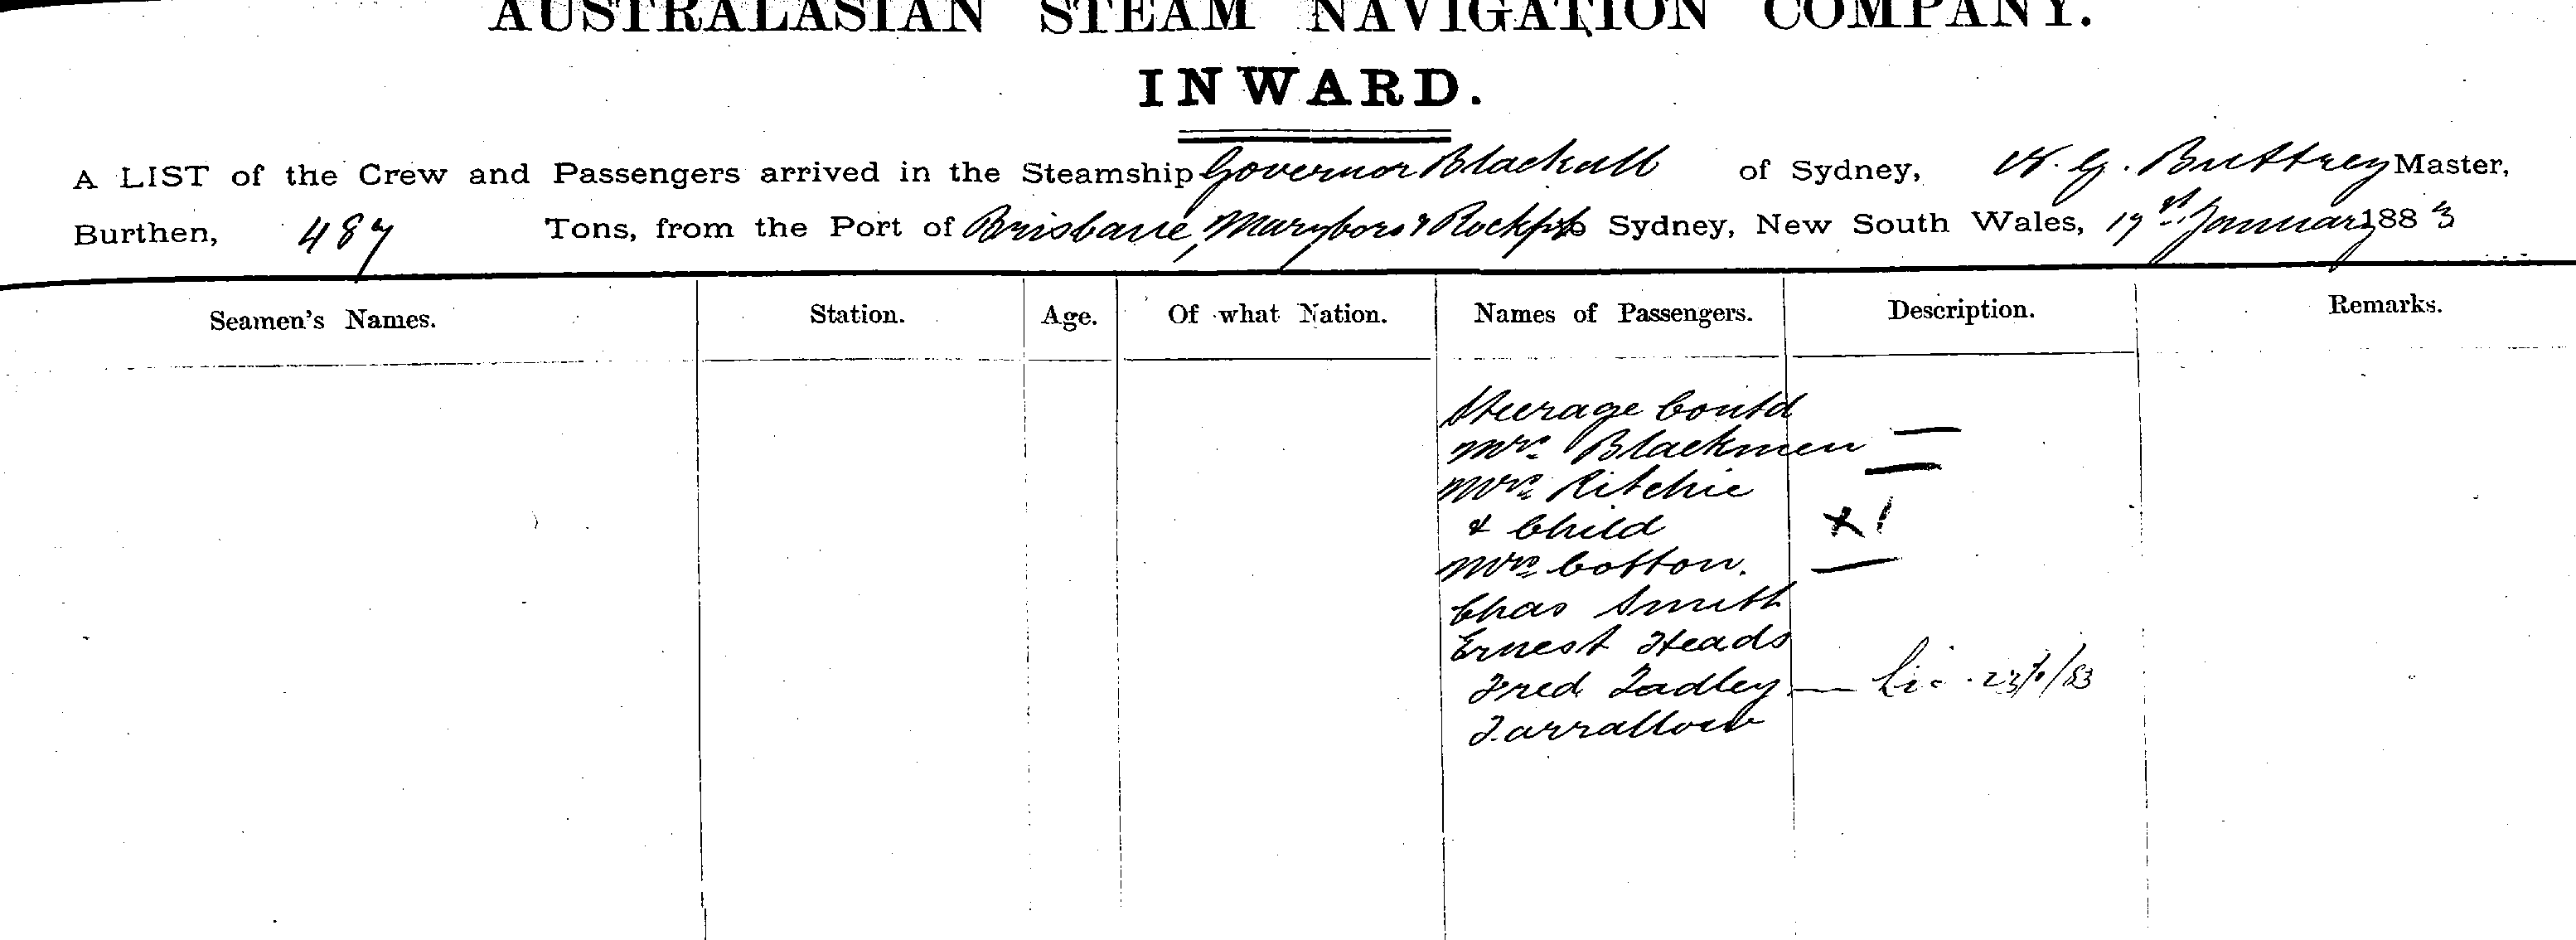 AUSTRALASIAN STEAM NAVIGATION COMPANY.
INWARD.
A LIST of the Crew and Passengers arrived in the Steamship Governor Blackall of Sydney, W. G. Buttrey Master,
Burthen, 487 Tons, from the Port of Brisbane, Maryboro & Rockptn to Sydney, New South Wales, 19 January 1883
Seamen's Names. Station. Age. Of what Nation. Names of Passengers. Description. Remarks.
Steerage Contd
Mrs Blackmen
Mrs Ritchie
& Child X 1
Mrs Cotton.
Chas Smith
Ernest Heads
Fred Tadley